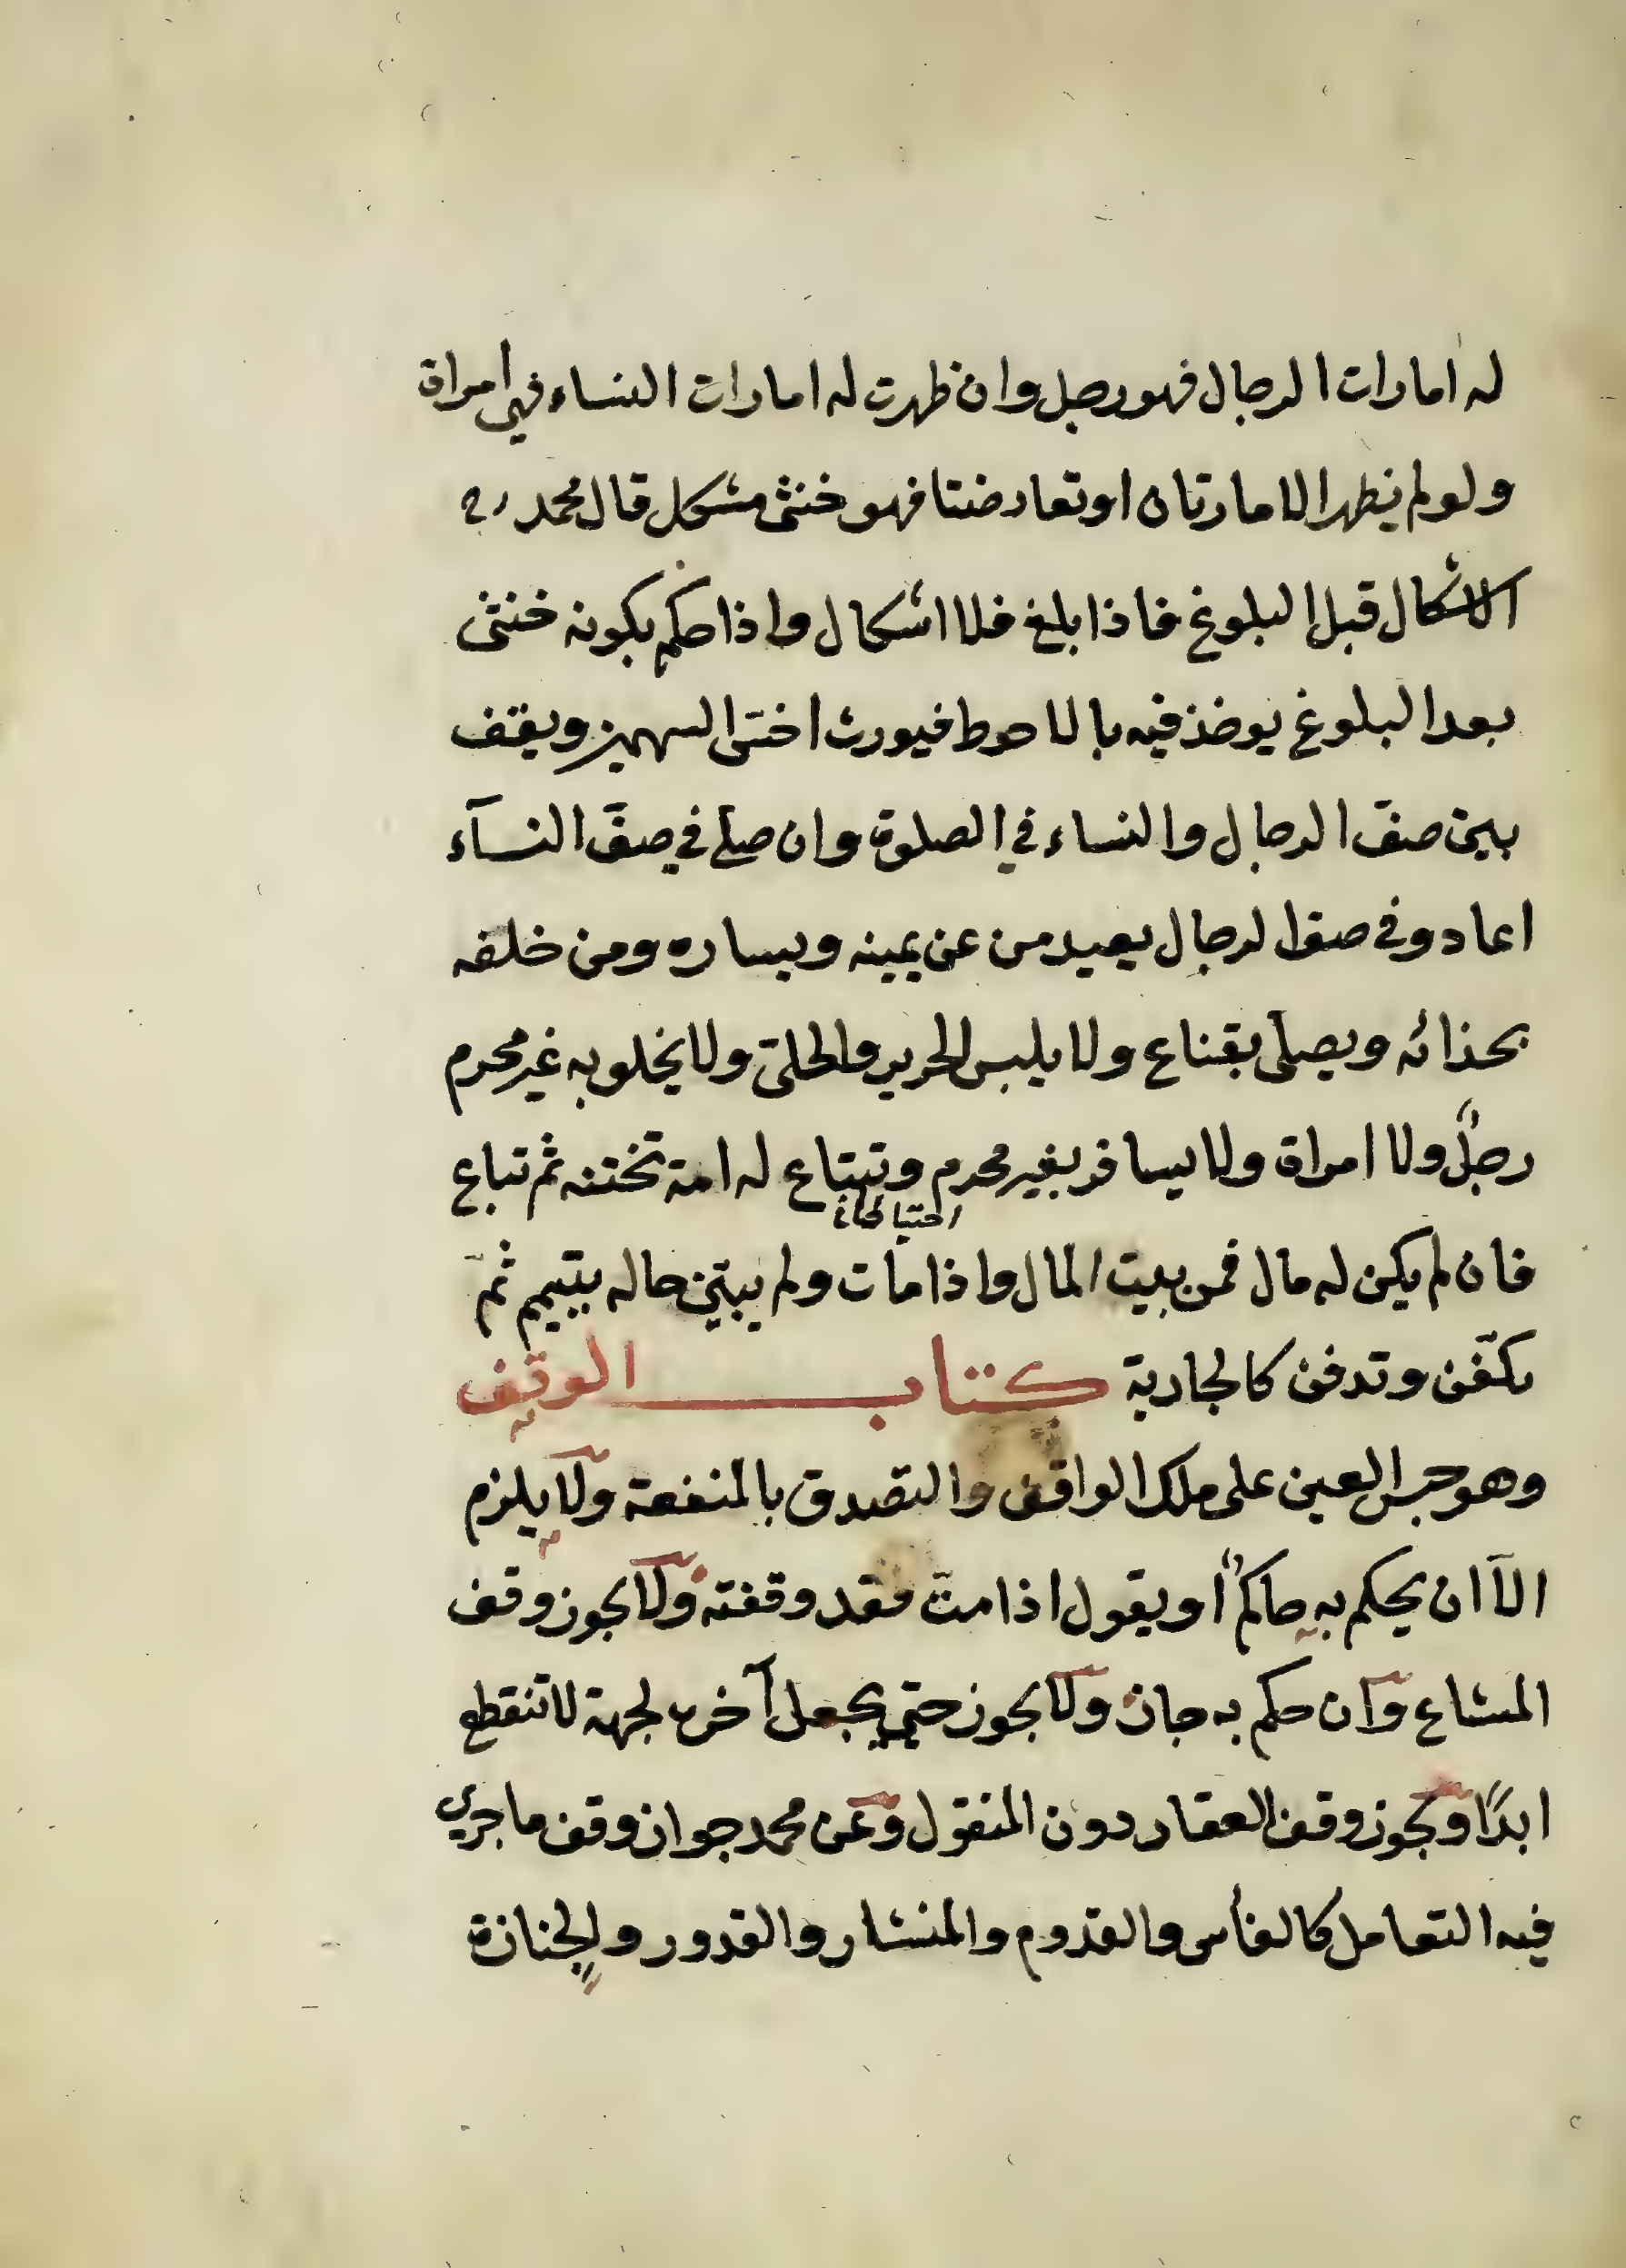 له امارات الرجال فهو رجل وان ظهرت له امارات النساء فهي امراة
ولو لم يظهر الامارتان او تعارضتا فهو خنثى مشكل قال محمد رح
الاشكال قبل البلوغ فاذا بلغ فلا اشكال واذا حكم بكونه خنثى
بعد البلوغ يوخذ فيه بالاحوط فيورث اخس السهمين ويقف
بين صف الرجال والنساء في الصلوة وان صلى في صف النسآء
اعاد وفي صف الرجال يعيد من عن يمينه ويساره ومن خلفه
بحذائه ويصلى بقناع ولا يلبس الحرير والحلى ولا يخلو به غير محرم
رجل ولا امراة ولا يسافر بغير محرم وتبتاع له امة تختنه ثم تباع
احتياطا
فان لم يكن له مال فمن بيت المال واذا مات ولم يبتين حاله يتيمم ثم
يكفن وتدفن كالجارية كتاب الوقف
وهو حبس العين على ملك الواقف والتصدق بالمنفعة ولا يلزم
الّا ان يحكم به حاكم او يقول اذا مت فقد وقفته ولا يجوز وقف
المشاع وان حكم به جاز ولا يجوز حتى يجعل آخره لجهة لا تنقطع
ابدًا ويجوز وقف العقار دون المنقول وعن محمد جواز وقف ما جري
فيه التعامل كالفأس والقدوم والمنشار والقدور والجنازة